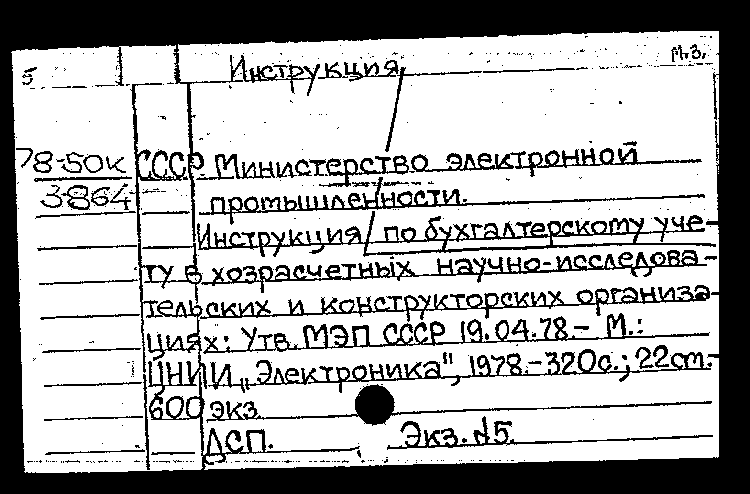 5 Инструкция М.З.
78-50к СССР Министерство электронной
3864 промышленности.
Инструкция по бухгалтерскому уче-
ту в хозрасчетных научно-исследова-
тельских и конструкторских организа-
циях: Утв. МЭП СССР 19.04.78.- М.:
ЦНИИ „Электроника", 1978.-320с.; 22см.-
600 экз.
ДСП. Экз. №5.